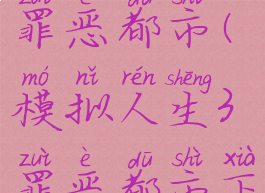 zuì è dū shì
罪恶都市(
mó nǐ rén shēng
模拟人生3
zuì è dū shì xià
罪恶都市下